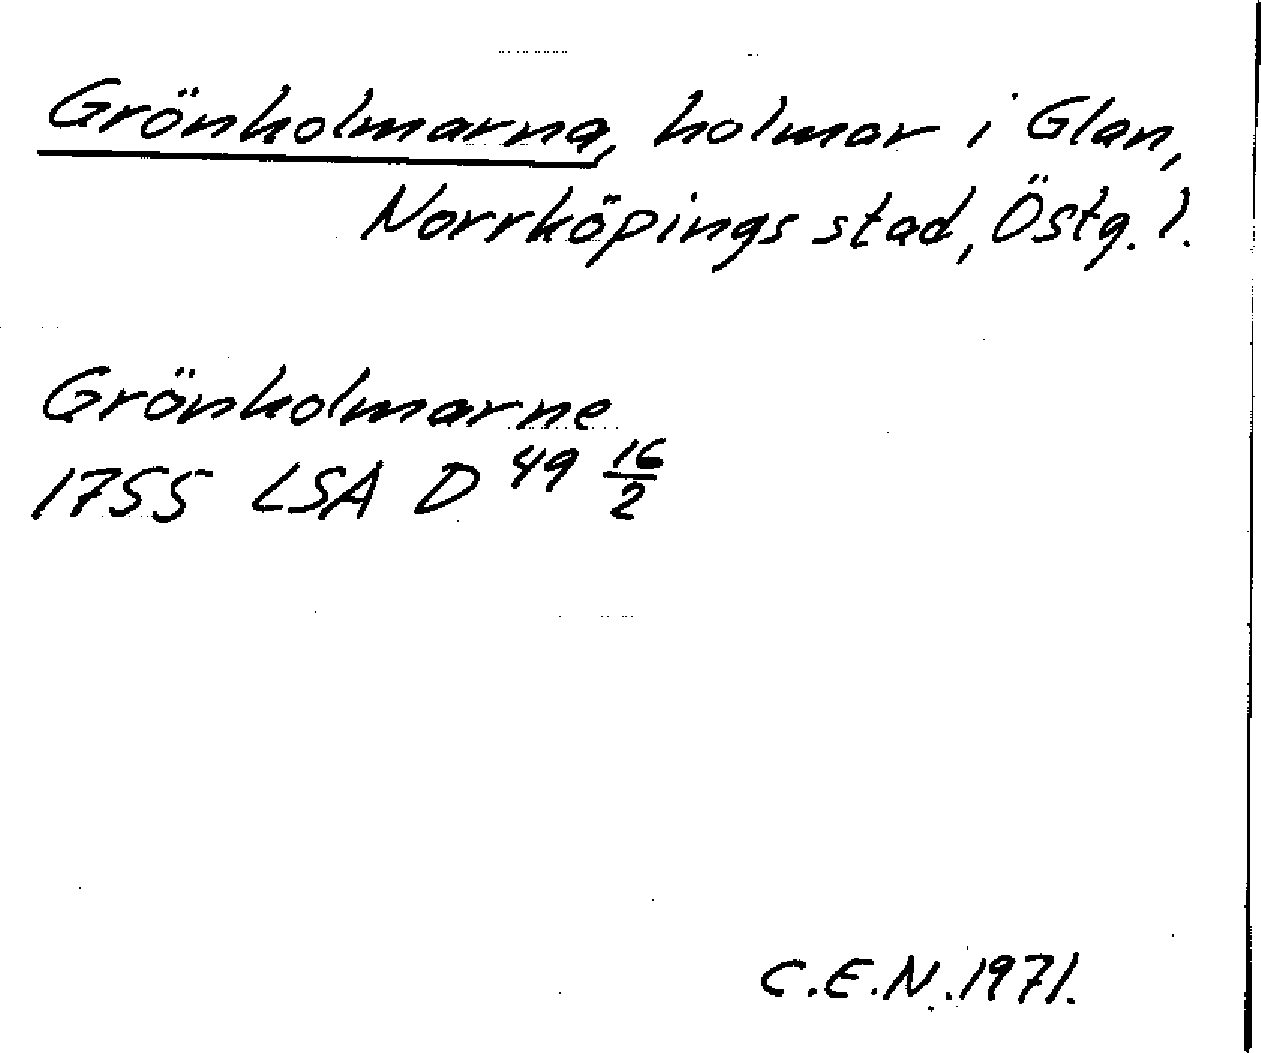 Grönholmarna, holmar i Glan,
Norrköpings stad, Östg. l.
Grönholmarne
1755 LSA D 49 16/2
C.E.N. 1971.